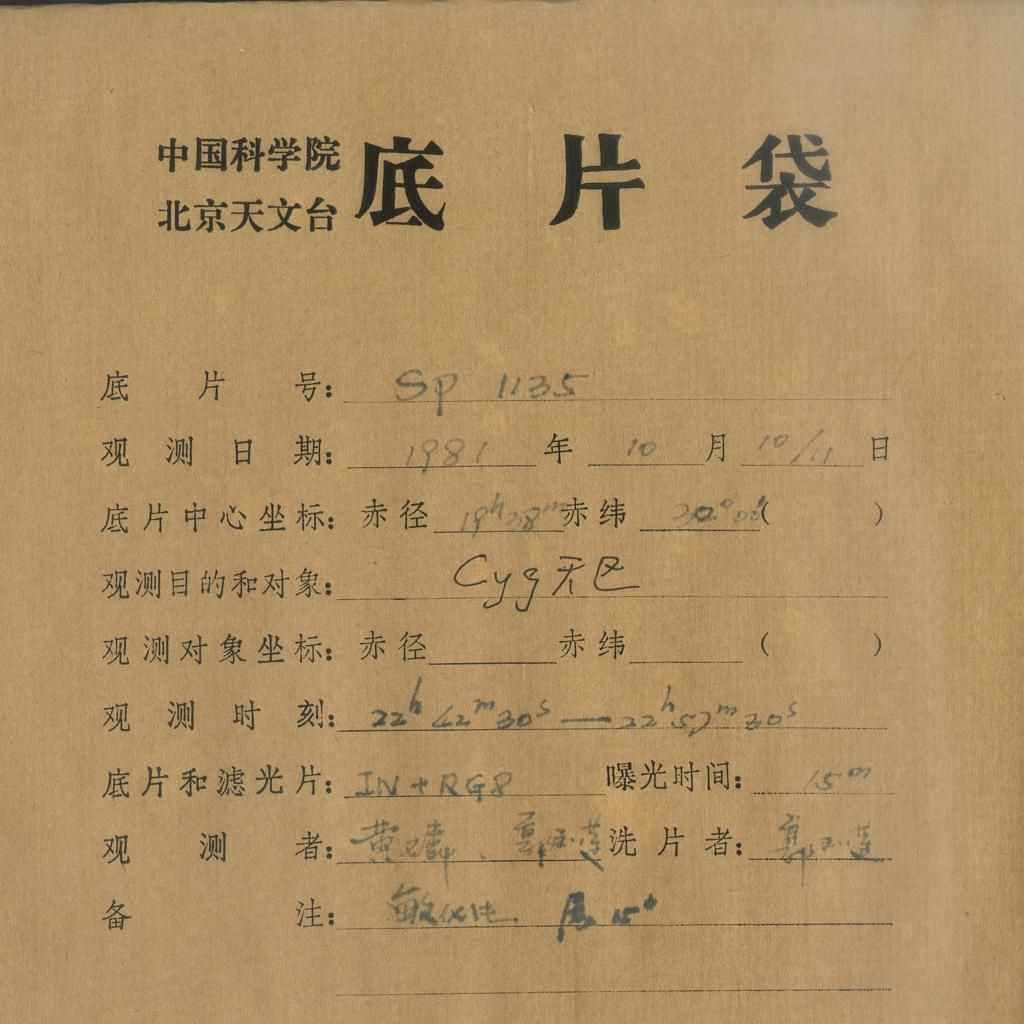 中国科学院
北京天文台
底片袋
底片号: Sp 1135
观测日期: 1981 年 10 月 10/11 日
底片中心坐标: 赤径 19h28m 赤纬 ( )
观测目的和对象: Cyg天区
观测对象坐标: 赤径 赤纬 ( )
观测时刻: 22h 42m 30s — 22h 57m 30s
底片和滤光片: IN + RG8 曝光时间: 15m
观测者: 黄 、郭 莲 洗片者: 郭 莲
备注: 敏化